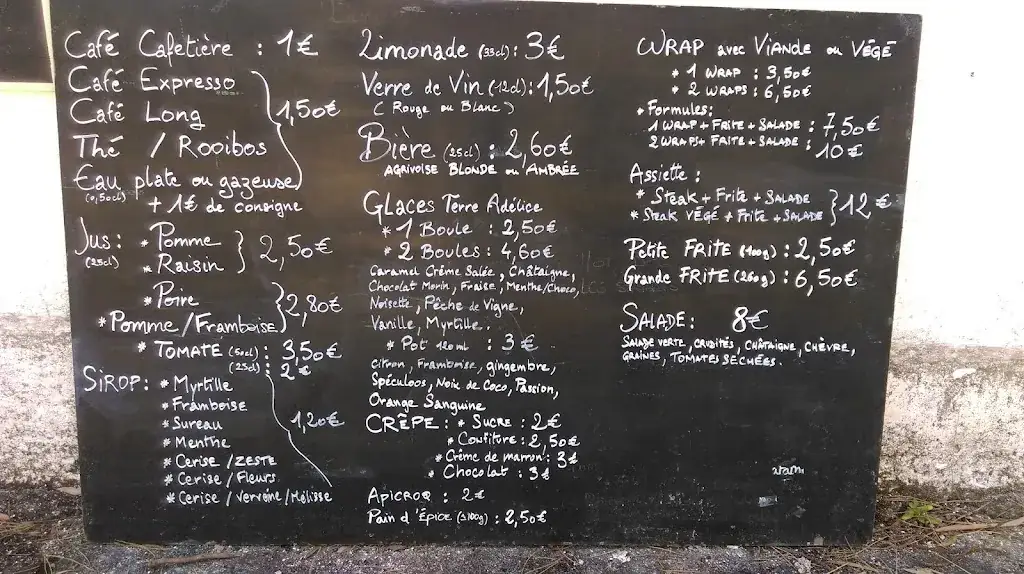 Café Cafetière : 1€
Café Expresso
Café Long
1,50€
Thé / Rooibos
Eau plate ou gazeuse
(0,50cl) + 1€ de consigne
Jus : * Pomme
(25cl) * Raisin
2,50€
* Poire
* Pomme/Framboise
2,80€
* TOMATE (50cl) : 3,50€
(25cl) : 2€
SIROP : * Myrtille
* Framboise
* Sureau 1,20€
* Menthe
* Cerise / ZESTE
* Cerise / Fleurs
* Cerise / Verveine/Mélisse
Limonade (33cl) : 3€
Verre de Vin (12cl) : 1,50€
( Rouge ou Blanc )
Bière (25cl) : 2,60€
AGRIVOISE BLONDE ou AMBRÉE
GLACES Terre Adélice
* 1 Boule : 2,50€
* 2 Boules : 4,60€
Caramel Crème Salée, Châtaigne,
Chocolat Morin, Fraise, Menthe/Choco,
Noisette, Pêche de Vigne,
Vanille, Myrtille.
* Pot 120ml : 3€
Citron, Framboise, gingembre,
Spéculoos, Noix de Coco, Passion,
Orange Sanguine
CRÊPE : * SUCRE : 2€
* Confiture : 2,50€
* Crème de marron : 3€
* Chocolat : 3€
APICROQ : 2€
Pain d'Épice (≃100g) : 2,50€
WRAP avec VIANDE ou VÉGÉ
* 1 WRAP : 3,50€
* 2 WRAPS : 6,50€
* Formules :
1 WRAP + FRITE + SALADE : 7,50€
2 WRAPS + FRITE + SALADE : 10€
Assiette :
* Steak + Frite + SALADE
* Steak VÉGÉ + Frite + SALADE
12€
Petite FRITE (100g) : 2,50€
Grande FRITE (260g) : 6,50€
SALADE : 8€
SALADE VERTE, CRUDITÉS, CHÂTAIGNE, CHÈVRE,
GRAINES, TOMATES SÉCHÉES.